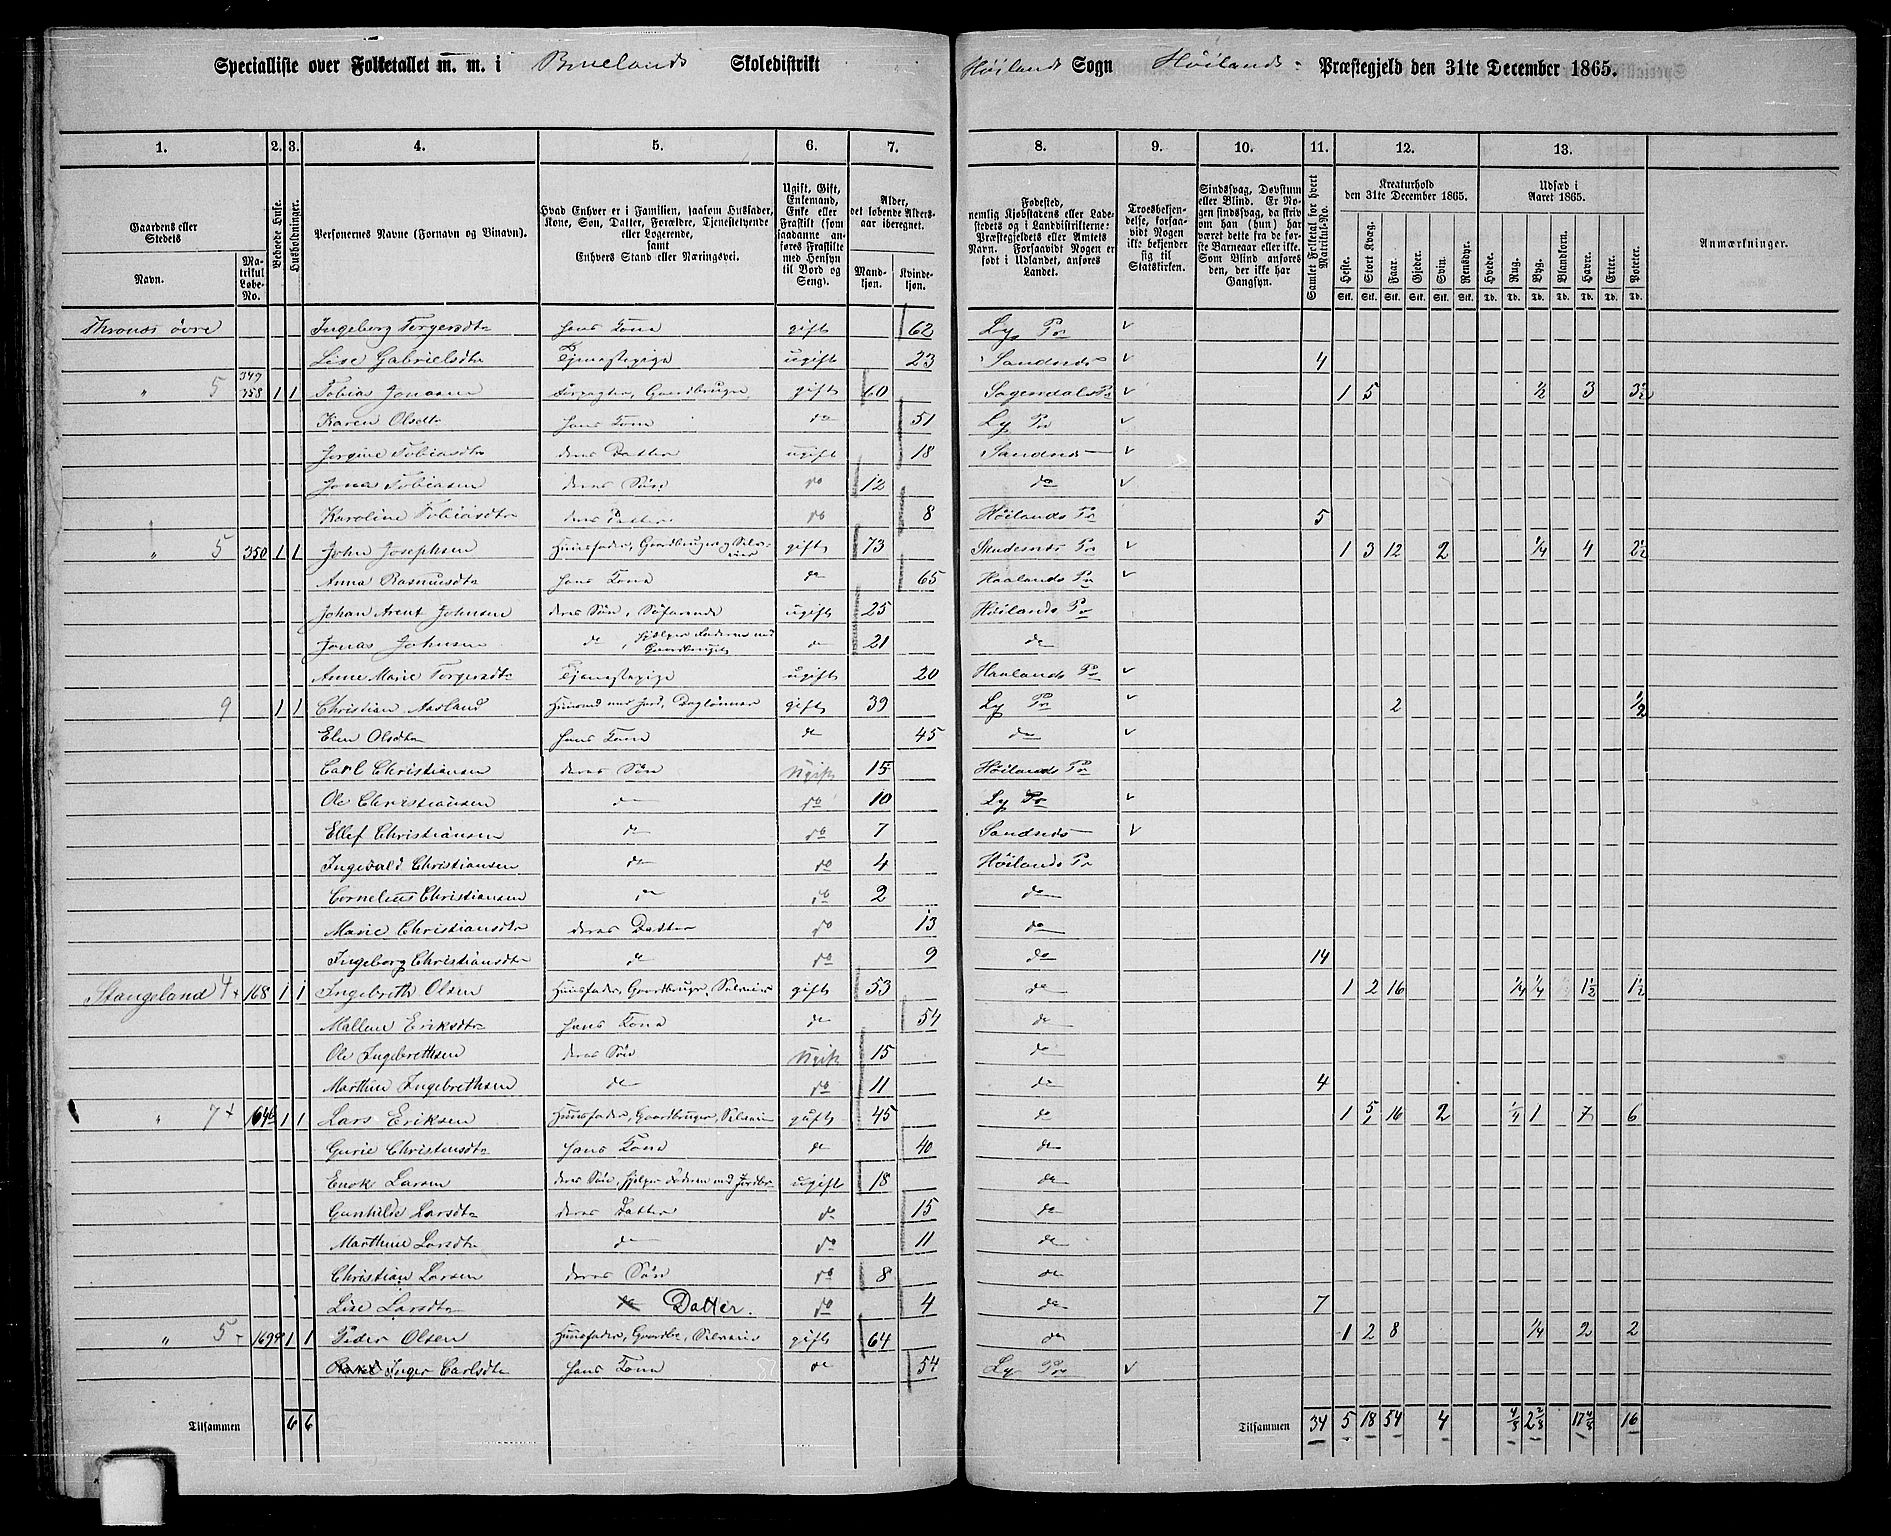 Specialliste over Folketallet m. m. i Bruelands Skoledistrikt Høilands Sogn Høilands Præstegjeld den 31te December 1865.
1. 2. 3. 4. 5. 6. 7. 8. 9. 10. 11. 12. 13.
Gaardens eller Stedets Navn. Matrikul Løbe-No.
Beboede Huse.
Husholdninger.
Personernes Navne (Fornavn og Tilnavn).
Hvad Enhver er i Familien, saasom Husfader, Kone, Søn, Datter, Forældre, Tjenestetyende eller Logerende, samt Enhvers Stand eller Næringsvei.
Ugift, Gift, Enkemand, Enke eller Fraskilt (som saadanne anføres Fraskilte med Hensyn til Bord og Seng).
Alder, det løbende Aldersaar iberegnet. Mandkjøn. Kvindekjøn.
Fødested, nemlig Kjøbstadens eller Ladestedets og i Landdistrikterne: Præstegjeldets eller Amtets Navn. Forsaavidt Nogen er født i Udlandet, anføres Landet.
Troesbekjendelse, forsaavidt Nogen ikke bekjender sig til Statskirken.
Samlet Folketal for hvert Matrikul-No.
Kreaturhold den 31te December 1865. Heste. Stort Kvæg. Faar. Gjeder. Svin. Rensdyr.
Udsæd i Aaret 1865. Hvede. Rug. Byg. Blandkorn. Havre. Erter. Poteter.
Anmærkninger.
Thronæs øvre Ingeborg Torgersdtr hans Kone gift 62 Ly Pr
Lise Gabrielsdtr Tjenestepige ugift 23 Sandnæs 4
" 5 349 358 1 1 Tobias Jonasen Forpagter, Gaardbruger gift 60 Sogendals Pr 1 5 ½ 3 3½
Karen Olsdtr hans Kone do 51 Ly Pr
Jorgine Tobiasdtr deres Datter ugift 18 Sandnæs
Jonas Tobiasen deres Søn do 12 do
Karoline Tobiasdtr deres Datter do 8 Høilands Pr 5
" 5 350 1 1 John Josephsen Huusfader, Gaardbruger og Selveier gift 73 Skudesnes Pr 1 3 12 2 ¼ 4 2½
Anna Rasmusdtr hans Kone do 65 Haalands Pr
Johan Arent Johnsen deres Søn, Søfarende ugift 25 Høilands Pr
Jonas Johnsen do, hjælper Faderen med Gaardbruget do 21 do
Anne Marie Torgersdtr Tjenestepige ugift 20 Haalands Pr
9 1 1 Christian Aasland Huusmand med Jord, Daglønner gift 39 Ly Pr 2 ½
Elen Olsdtr hans Kone do 45 do
Carl Christiansen deres Søn Ugift 15 Høilands Pr
Ole Christiansen do do 10 Ly Pr
Ellef Christiansen do do 7 Sandnæs
Ingevald Christiansen do do 4 Høilands Pr
Cornelius Christiansen do do 2 do
Marie Christiansdtr deres Datter do 13 do
Ingeborg Christiansdtr do do 9 do 14
Stangeland 4 168 1 1 Ingebreth Olsen Huusfader, Gaardbruger, Selveier gift 53 do 1 2 16 ¼ ¼ 1½ 1½
Mallene Eriksdtr hans Kone do 54 do
Ole Ingebrethsen deres Søn Ugift 15 do
Marthin Ingebrethsen do do 11 do 4
" 7 1 1 Lars Eriksen Huusfader, Gaardbruger, Selveier gift 45 do 1 5 16 2 ¼ 1 7 6
Gurie Christensdtr hans Kone do 40 do
Enok Larsen deres Søn, hjelper Faderen med Jordbr ugift 18 do
Gunhilde Larsdtr deres Datter do 15 do
Marthine Larsdtr do do 11 do
Christian Larsen deres Søn do 8 do
Lise Larsdtr do Datter. do 4 do 7
" 5 1 1 Peder Olsen Huusfader, Gaardbr, Selveier gift 64 do 1 2 8 ¼ 2 2
Inger Carlsdtr hans Kone do 54 Ly Pr
Tilsammen 6 6 Tilsammen 34 5 18 54 4 4/8 2 2/8 17 4/8 16